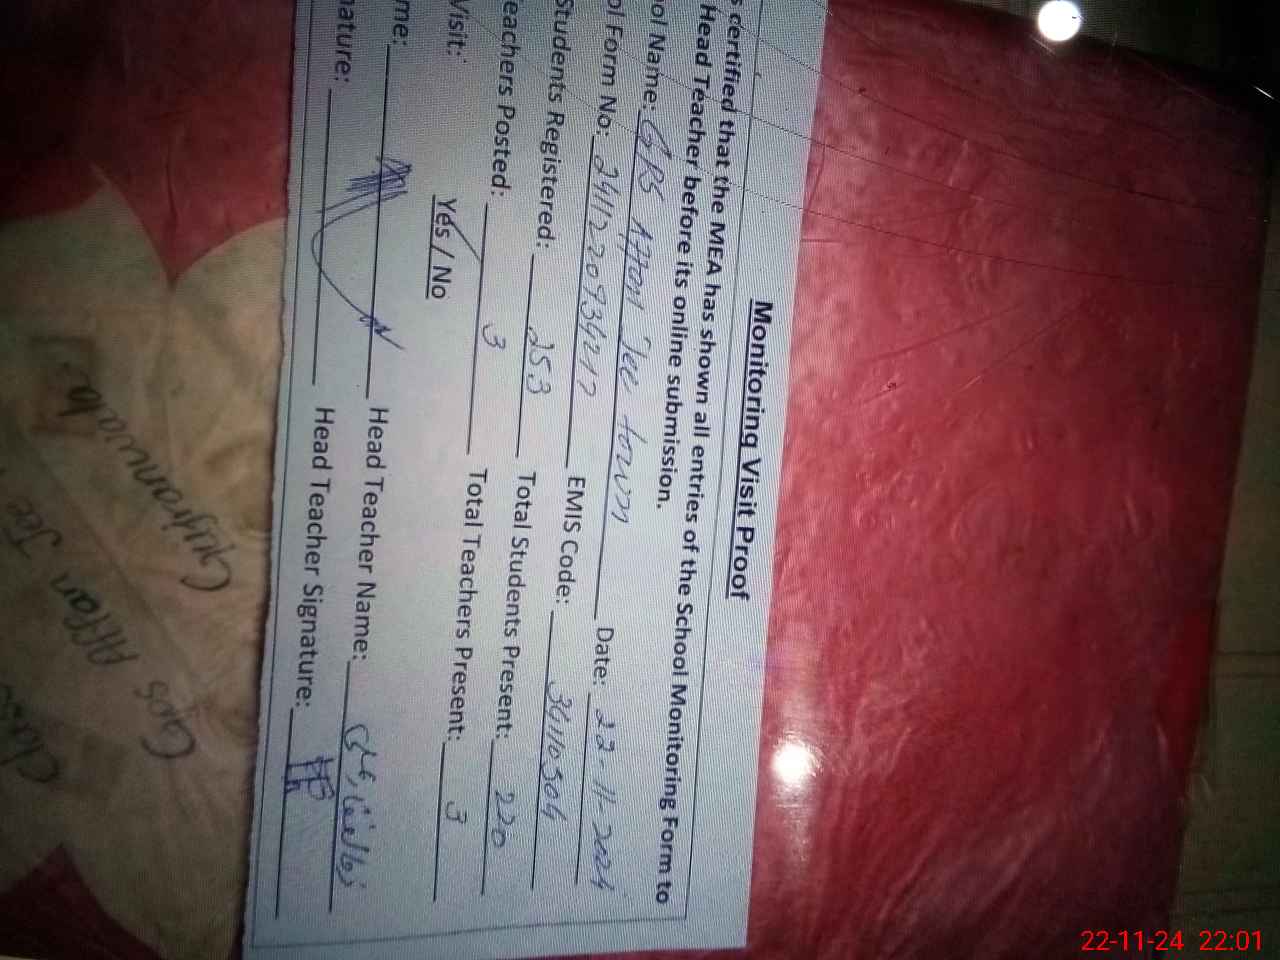 Monitoring Visit Proof
s certified that the MEA has shown all entries of the School Monitoring Form to
Head Teacher before its online submission.
ol Name: GPS Affan Jee town Date: 22-11-2024
ol Form No: EMIS Code:
Students Registered: 253 Total Students Present: 220
eachers Posted: 3 Total Teachers Present: 3
Visit: Yes / No
me: Head Teacher Name:
nature: Head Teacher Signature:
Class
GPS Affan Jee
Gujranwala
22-11-24 22:01